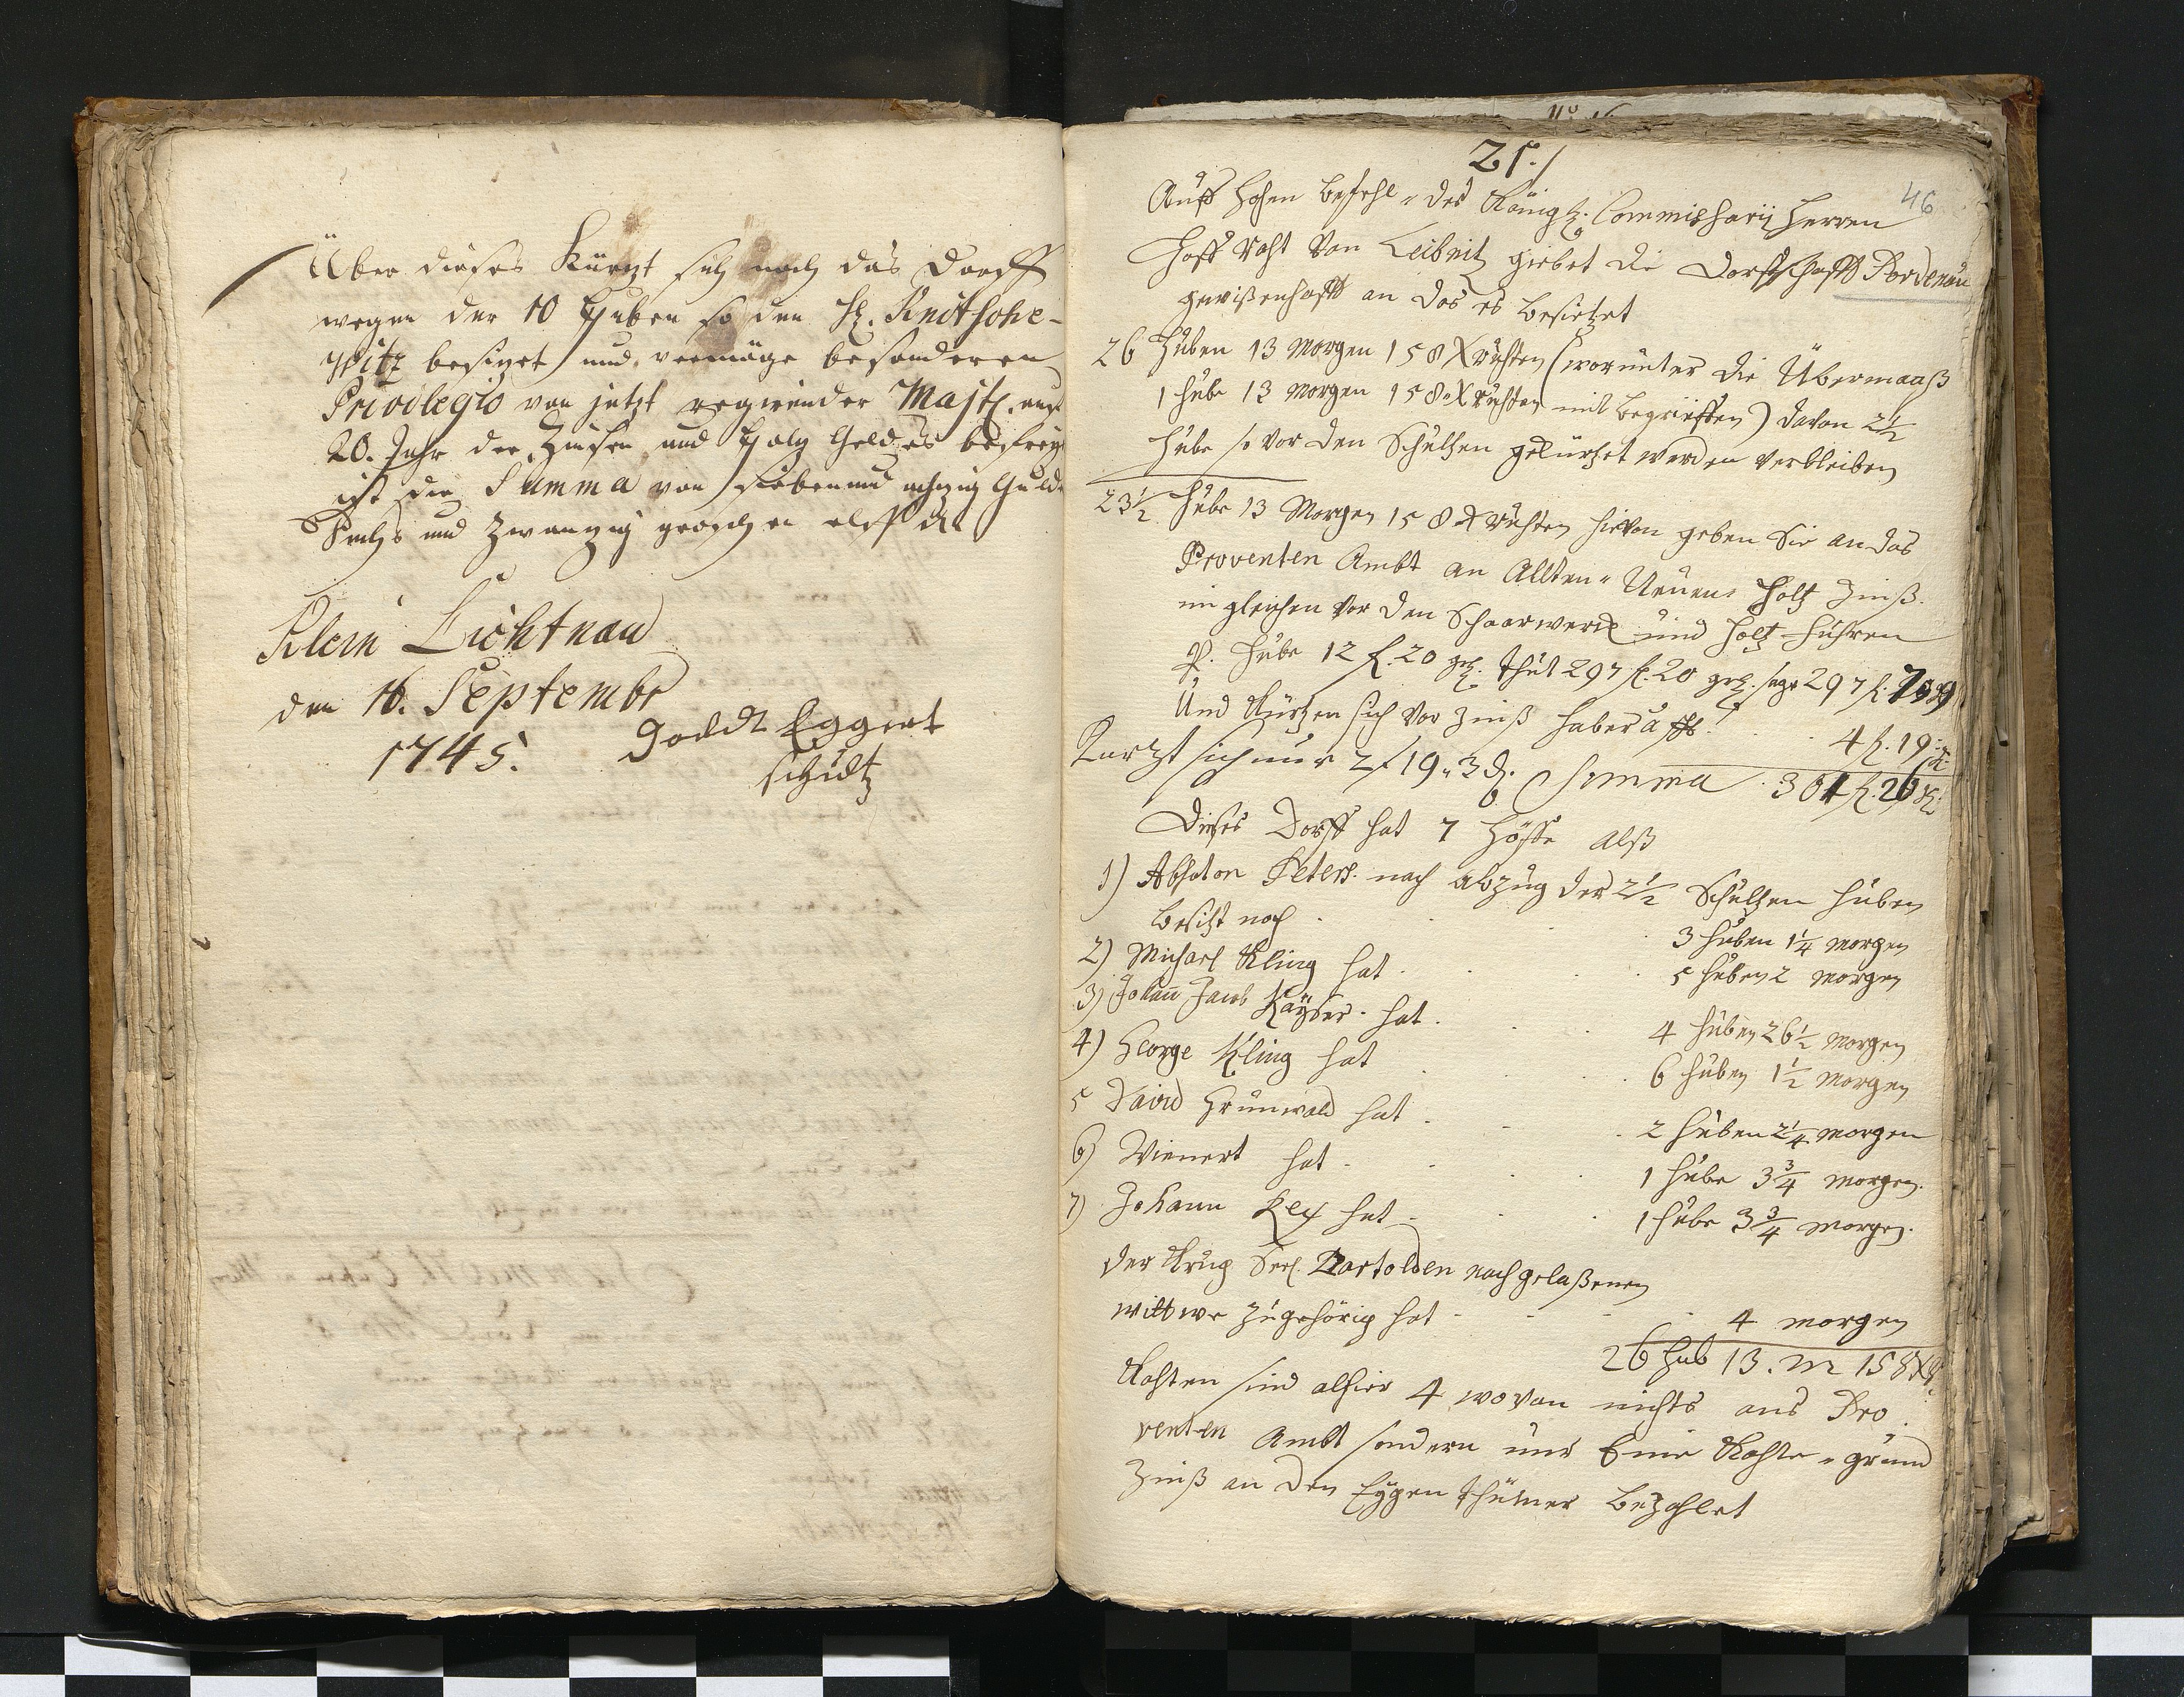 Über dieses Kürzt sich noch das Dorff
wegen der 10 Huben so den H. Knitsohe-
witz besizet und vermöge besonderen
Privilegio von jetzt regirender Majtt. auf
20. Jahr der Zinsen und Holz Geldes befreyt
ist die Summa von siebenund achzig Guld
Sechs und Zwanzig groschen elff d
Klein Lichtnau
den 16. Septembr
1745. Eggert
Schultz
46
25./
Auff hohen Befehl des Königl. Commissarij Herren
Hoff Raht Von Leibnitz giebet die Dorfschafft Pordenau
gewißenhafft an das es besietzet
26 Huben 13 Morgen 158 Ruhten (worunter die Übermaaß
1 hube 13 morgen 158 Ruhten mit begrieffen) davon 2½
hube so vor den Schultzen gekürtzet werden verbleiben
23½ Hube 13 Morgen 158 Ruhten hievon geben Sie an das
Proventen Ambt an Allten- Neuen- Holtz Zinß.
im gleichen vor den Schaarwerck und Holtz-fuhren
p. hube 12 f. 20 gr. thut 297 f. 20 gr. 297 f.
Und Kürtzen sich vor Zinß haber 4 f. 19
Kurtzt sich nur 2 f 19 „ 3 d. Summa 301 f. 26
Dieses Dorff hat 7 Höffe alß
1) Absolon Peters. nach abzug der 2½ Schultzen huben
besitzt noch 3 huben 1¼ morgen
2) Michael Kling hat 5 huben 2 morgen
3) Johann Jacob Kayser hat 4 huben 26½ morgen
4) George Kling hat 6 huben 1½ morgen
5 David Grunwald hat 2 huben 2¼ morgen
6) Wienert hat 1 hube 3¾ morgen.
7) Johann Rex hat 1 hube 3¾ morgen.
der Krug Seel. Bartolden nachgelaßenen
wittwe zugehörig hat 4 morgen
26 hub 13. M 158
Kahten sind alhier 4 wovon nichts ans Pro
venten Ambt sondern nur Eine Kahte-grund
Zinß an den Eygenthümer bezahlet